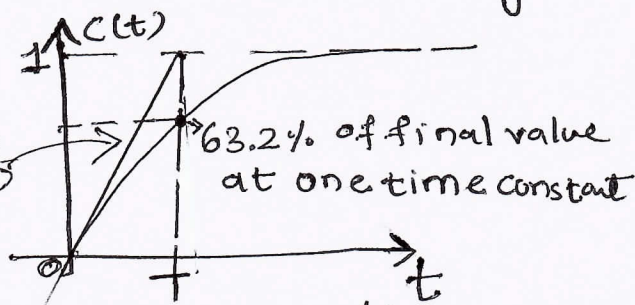 C(t)
1
63.2% of final value
at one time constant
0
T
t